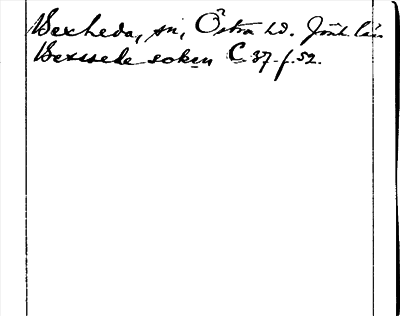 Bexheda, sn, Östra hd. Jönk. län
Bexsede soken C 37. f. 52.